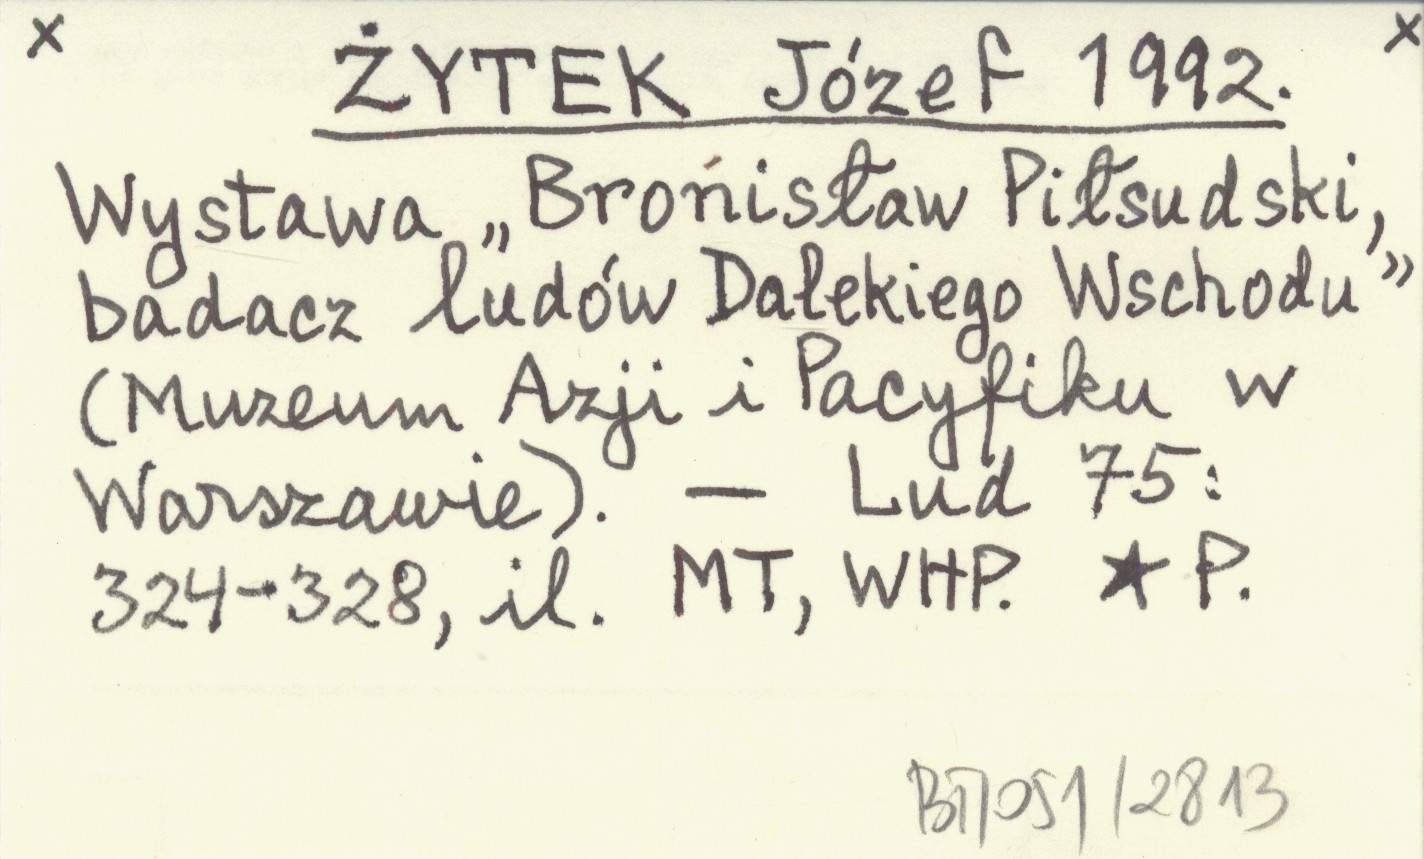 x x
ŻYTEK Józef 1992.
Wystawa „Bronisław Piłsudski,
badacz ludów Dalekiego Wschodu”
(Muzeum Azji i Pacyfiku w
Warszawie). — Lud 75:
324-328, il. MT, WHP. ★ P.
BP/051/2813